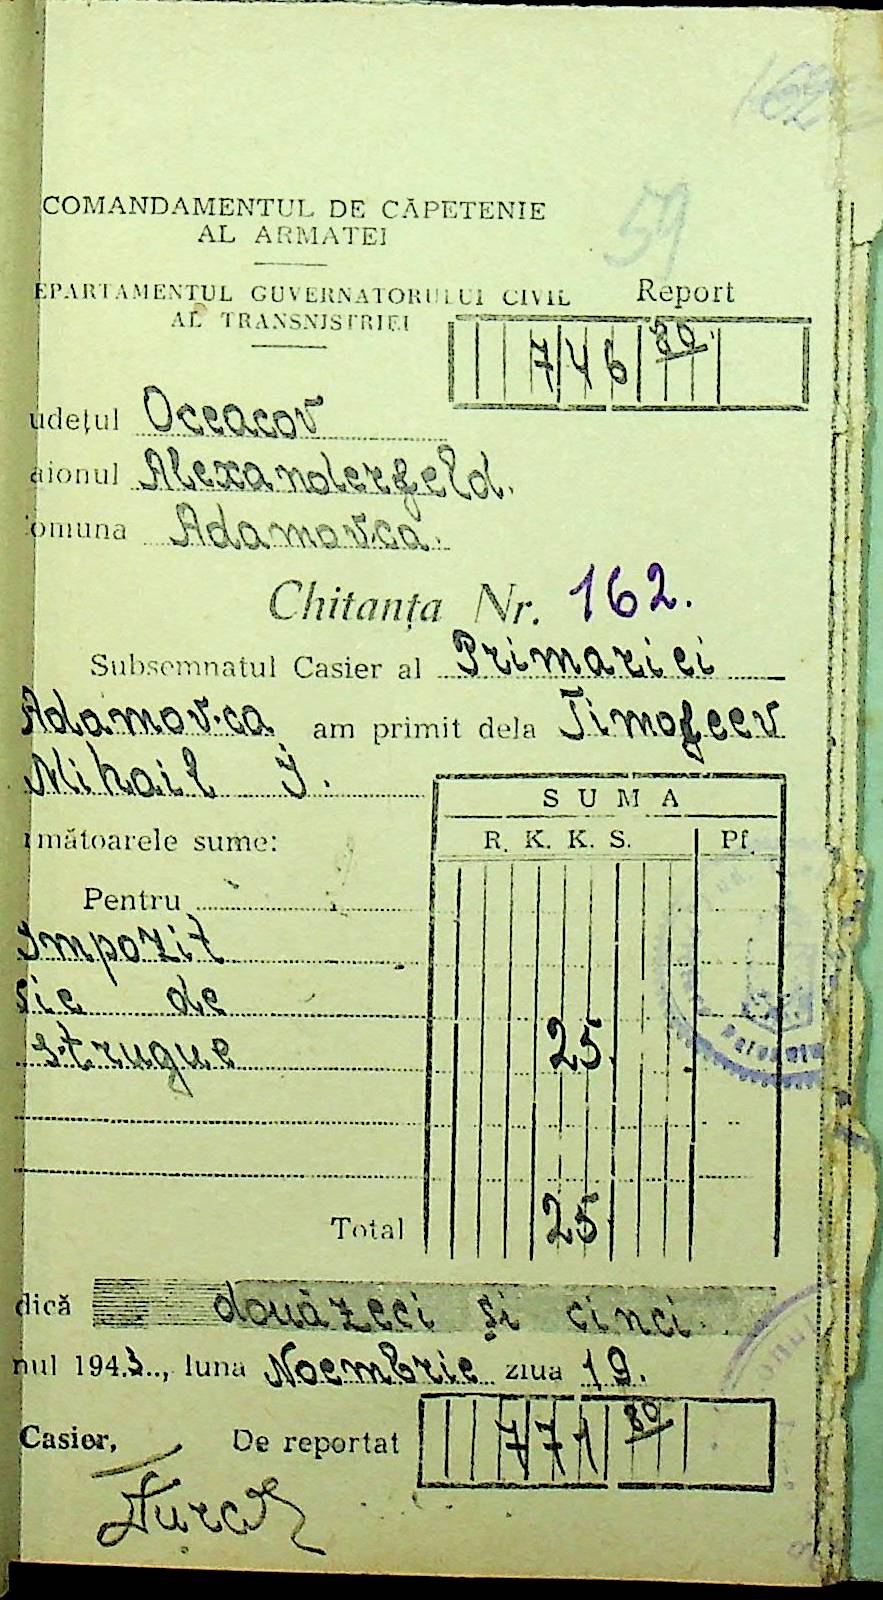 162
COMANDAMENTUL DE CĂPETENIE
AL ARMATEI
59
EPARTAMENTUL GUVERNATORULUI CIVIL
AL TRANSNISTRIEI
Report
746 80
udețul Oceacov
aionul Alexanderfeld.
omuna Adamovca.
Chitanța Nr. 162.
Subsemnatul Casier al Primariei
Adamovca am primit dela Timofeev
Mihail I.
SUMA
mătoarele sume:
R. K. K. S. Pf.
Pentru
Impozit
sie de
strugue 25.
Total 25
dică douăzeci și cinci.
nul 1943., luna Noembrie ziua 19.
Casier, De reportat 771 80